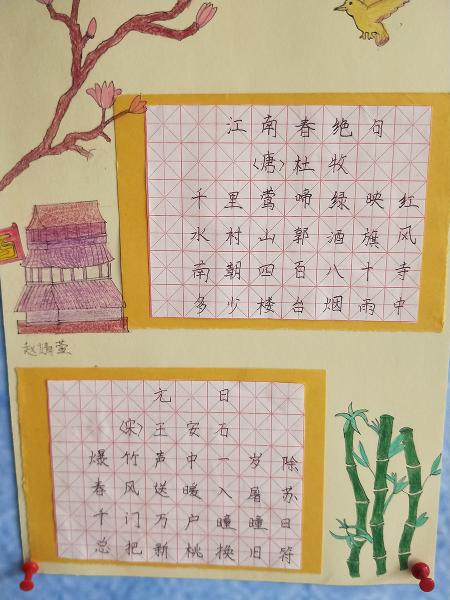 江南春绝句
〈唐〉杜牧
千里莺啼绿映红
水村山郭酒旗风
南朝四百八十寺
多少楼台烟雨中
赵萱
元日
〈宋〉王安石
爆竹声中一岁除
春风送暖入屠苏
千门万户瞳瞳日
总把新桃换旧符